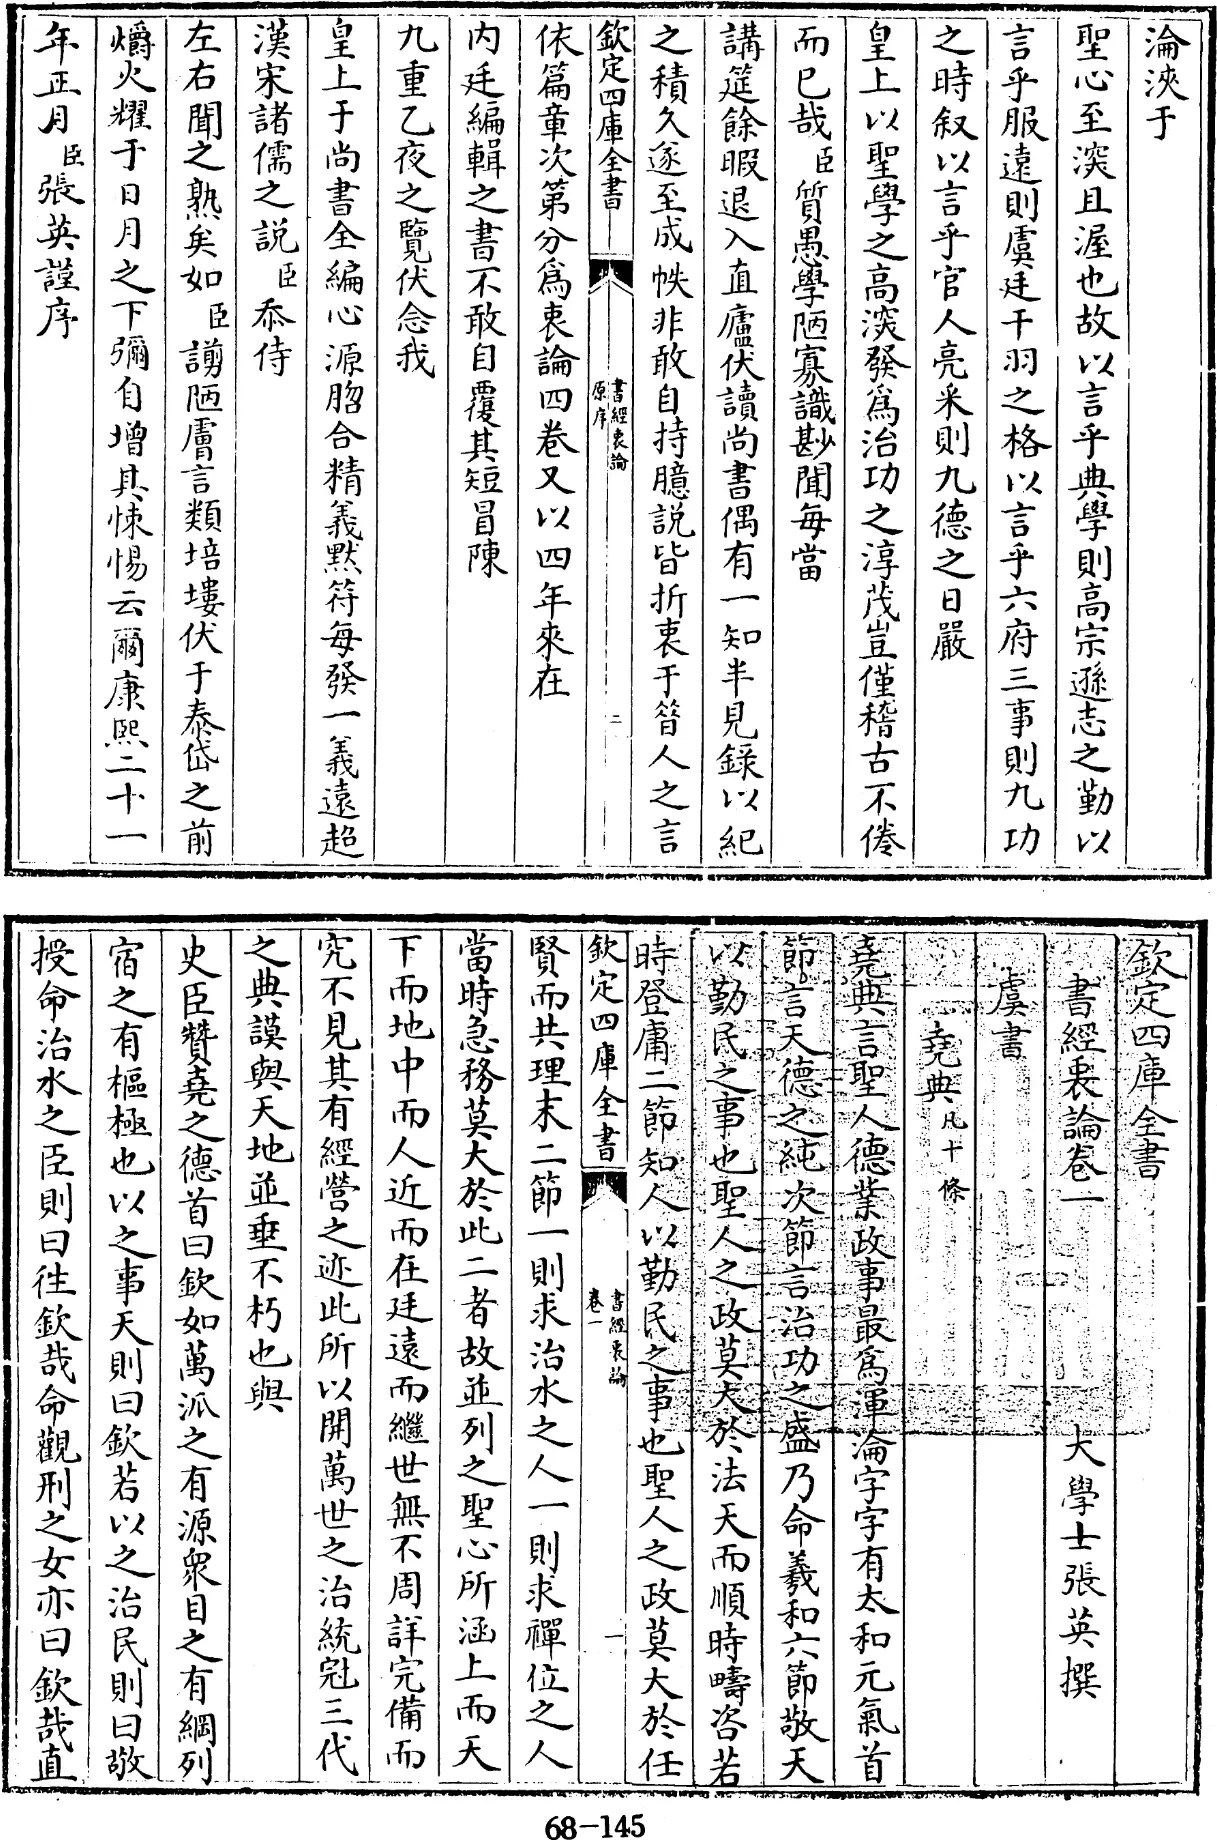 淪浹于
聖心至深且渥也故以言乎典學則高宗遜志之勤以
言乎服遠則虞廷干羽之格以言乎六府三事則九功
之時叙以言乎官人亮采則九德之日嚴
皇上以聖學之高深發爲治功之淳茂豈僅稽古不倦
而已哉臣質愚學陋寡識尠聞每當
講筵餘暇退入直廬伏讀尚書偶有一知半見錄以紀
之積久遂至成帙非敢自持臆説皆折衷于昔人之言
欽定四庫全書
書經衷論
原序
二
依篇章次第分爲衷論四卷又以四年來在
内廷編輯之書不敢自覆其短冒陳
九重乙夜之覽伏念我
皇上于尚書全編心源脗合精義默符每發一義遠超
漢宋諸儒之説臣忝侍
左右聞之熟矣如臣謭陋膚言類培塿伏于泰岱之前
爝火耀于日月之下彌自增其悚惕云爾康熙二十一
年正月臣張英謹序
欽定四庫全書
書經衷論卷一
大學士張英撰
虞書
堯典凡十條
堯典言聖人德業政事最爲渾淪字字有太和元氣首
節言天德之純次節言治功之盛乃命羲和六節敬天
以勤民之事也聖人之政莫大於法天而順時疇咨若
時登庸二節知人以勤民之事也聖人之政莫大於任
欽定四庫全書
書經衷論
卷一
一
賢而共理末二節一則求治水之人一則求禪位之人
當時急務莫大於此二者故並列之聖心所涵上而天
下而地中而人近而在廷遠而繼世無不周詳完備而
究不見其有經營之迹此所以開萬世之治統冠三代
之典謨與天地並垂不朽也與
史臣贊堯之德首曰欽如萬派之有源衆目之有綱列
宿之有樞極也以之事天則曰欽若以之治民則曰敬
授命治水之臣則曰往欽哉命觀刑之女亦曰欽哉直
68-145